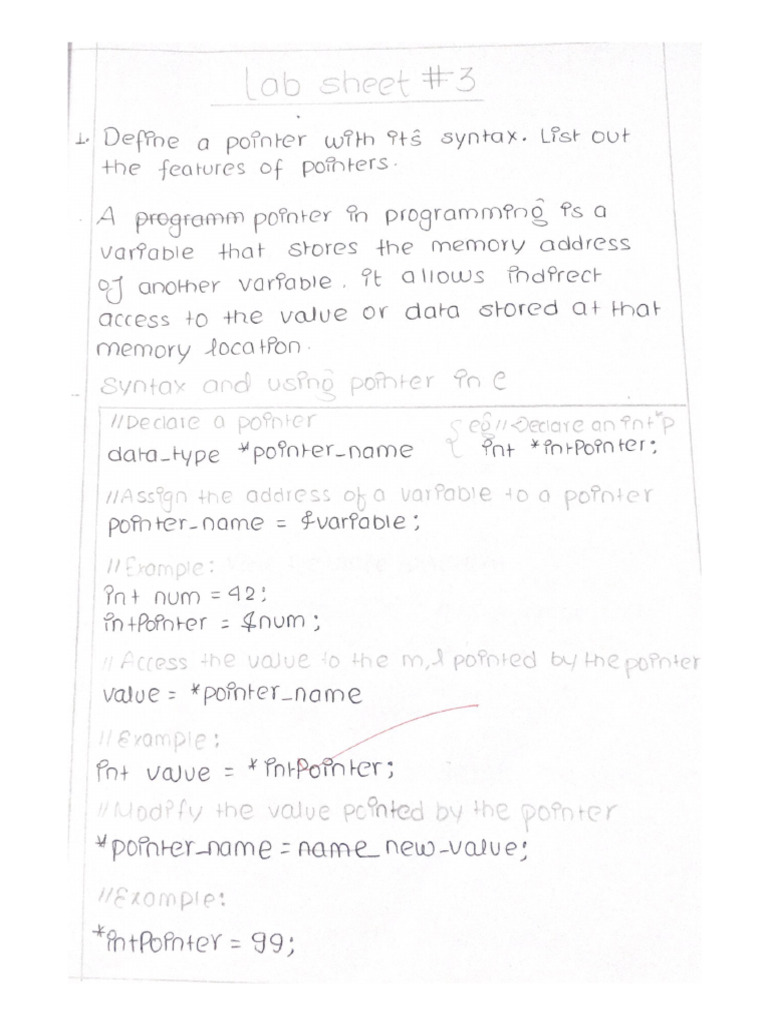 Lab sheet #3
1. Define a pointer with its syntax. List out
the features of pointers.
A programm pointer in programming is a
variable that stores the memory address
of another variable. it allows indirect
access to the value or data stored at that
memory location.
Syntax and using pointer in C
//Declare a pointer
data_type *pointer_name
eg //Declare an int *p
int *intPointer;
//Assign the address of a variable to a pointer
pointer_name = &variable;
//Example:
int num = 42;
intPointer = &num;
//Access the value to the m,l pointed by the pointer
value = *pointer_name
//Example:
int value = *intPointer;
//Modify the value pointed by the pointer
*pointer_name = name_new_value;
//Example:
*intPointer = 99;